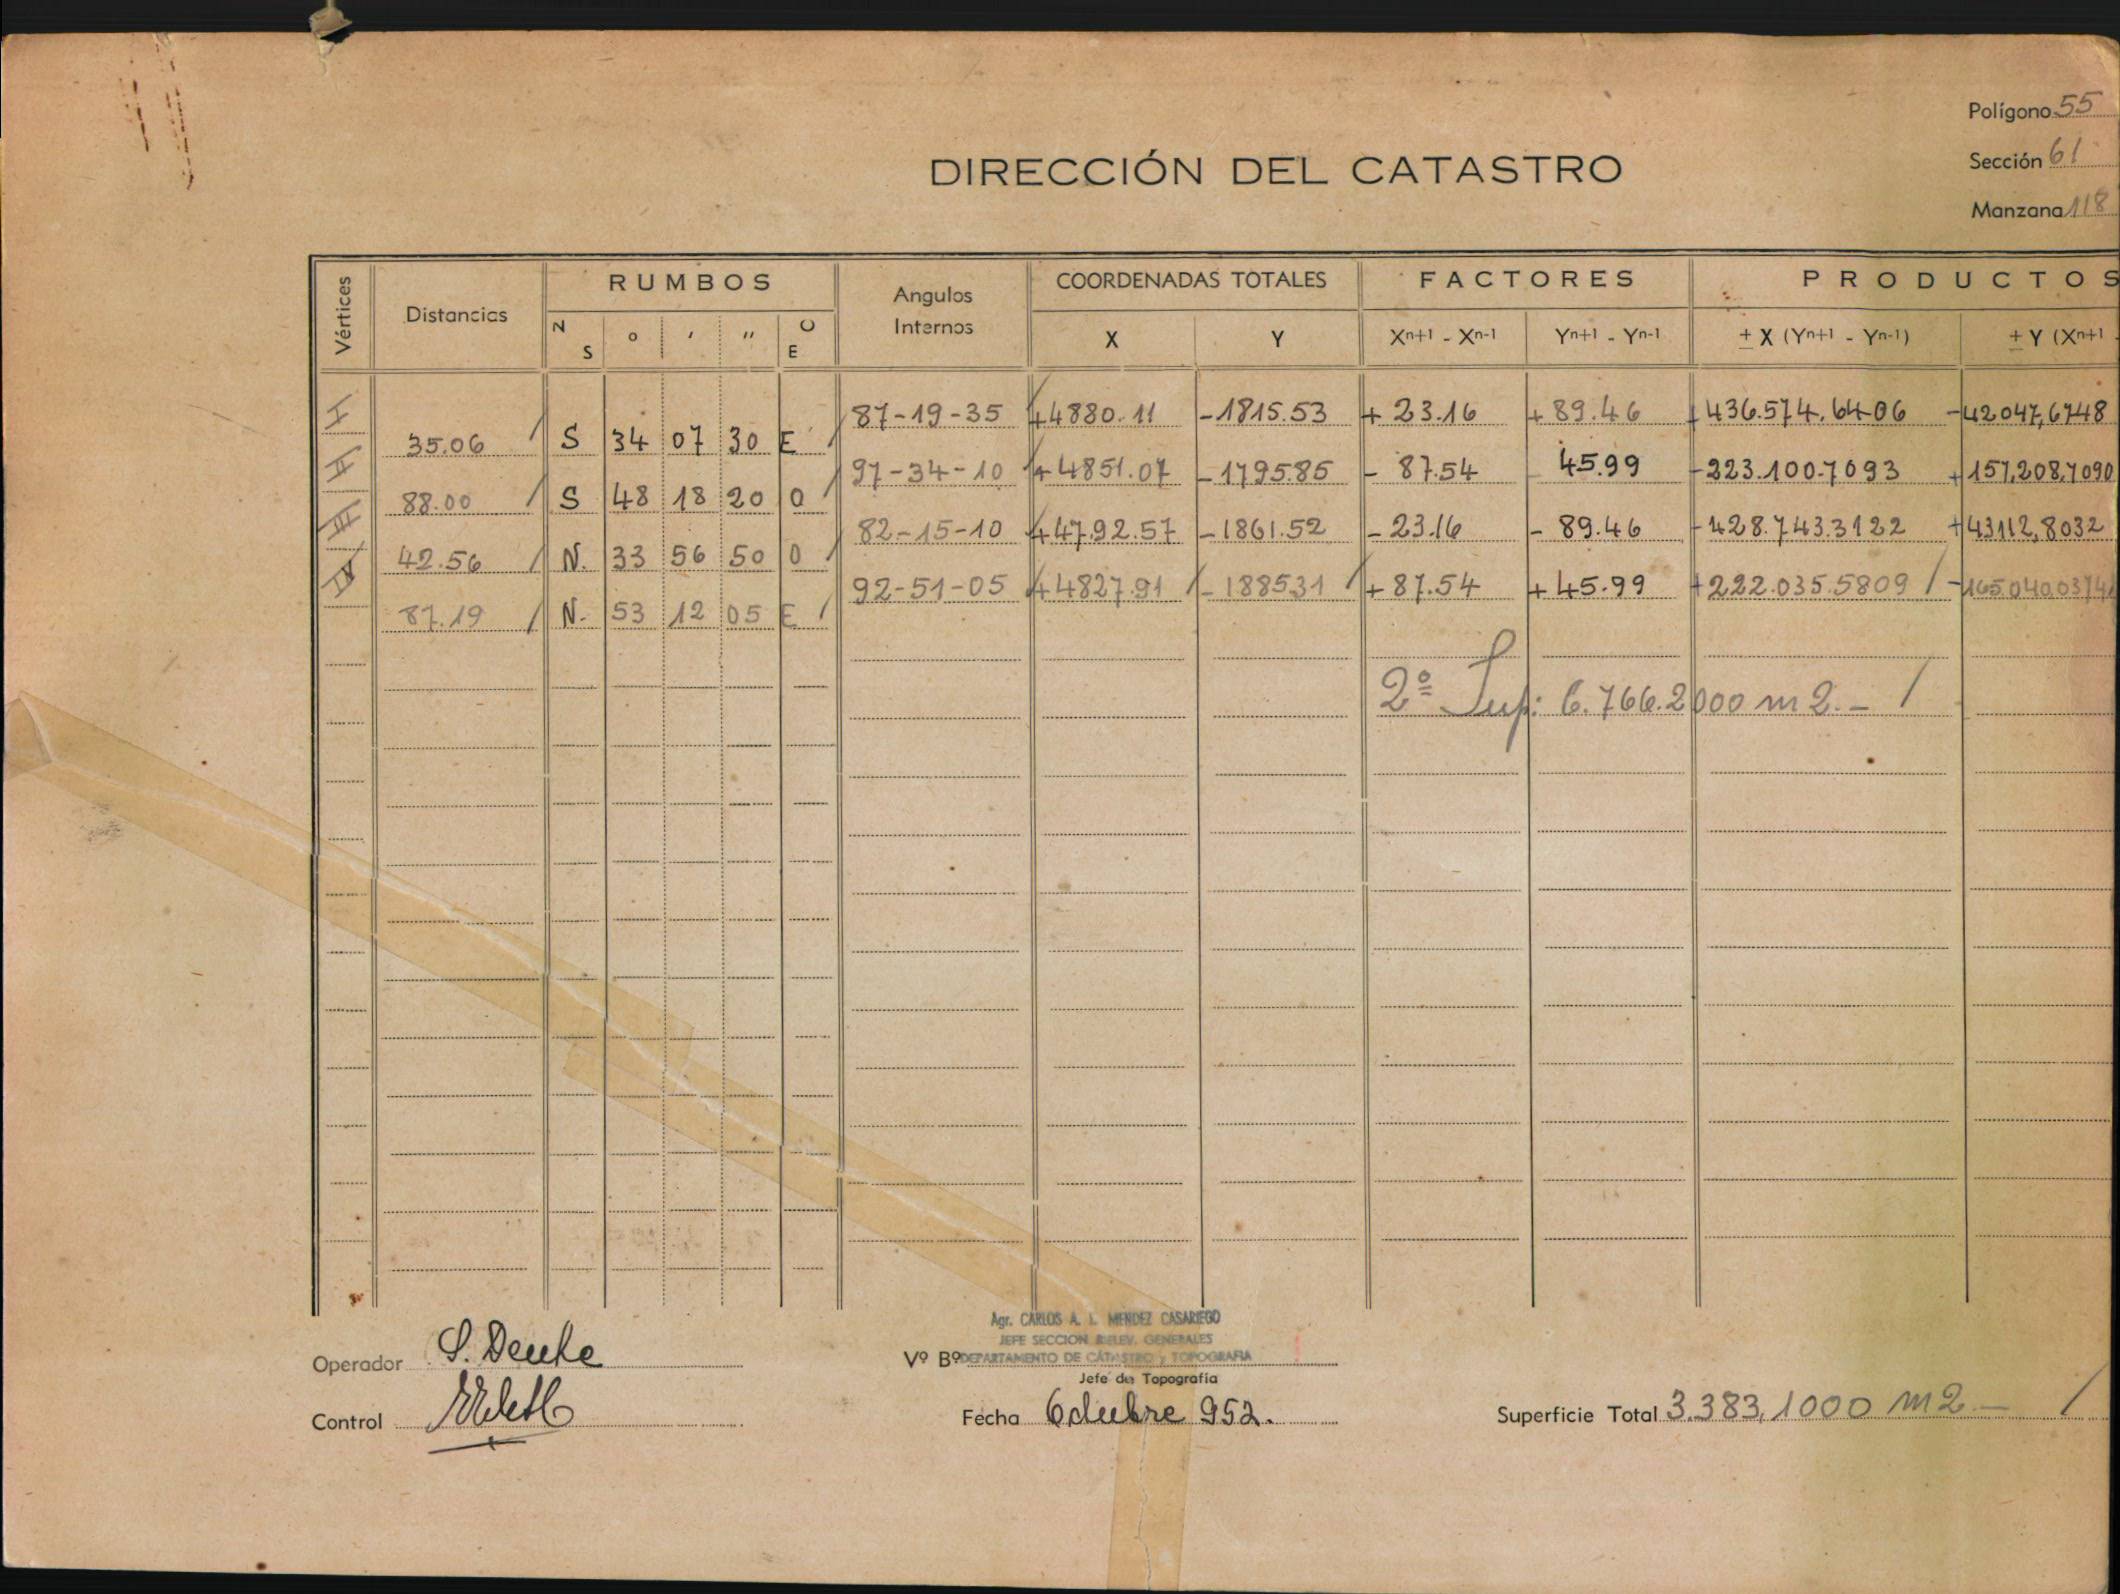 Polígono 55
DIRECCIÓN DEL CATASTRO
Sección 61
Manzana 118
Vértices Distancias RUMBOS Angulos Internos COORDENADAS TOTALES FACTORES PRODUCTOS
N S ° ' " O E X Y Xn+1 - Xn-1 Yn+1 - Yn-1 ± X (Yn+1 - Yn-1) ± Y (Xn+1 -
I 87-19-35 +4880.11 -1815.53 + 23.16 + 89.46 +436.574.6406 -42047,6748
35.06 S 34 07 30 E
II 97-34-10 +4851.07 -1795.85 - 87.54 - 45.99 -223.100.7093 +157,208,7090
88.00 S 48 18 20 O
III 82-15-10 +4792.57 -1861.52 - 23.16 - 89.46 -428.743.3122 +43112,8032
42.56 N. 33 56 50 O
IV 92-51-05 +4827.91 -1885.31 + 87.54 + 45.99 +222.035.5809 -165.040.0374
87.19 N. 53 12 05 E
2º Sup: 6.766.2000 m2.-
Agr. CARLOS A. L. MENDEZ CASARIEGO
JEFE SECCION RELEV. GENERALES
Operador S. Deuke Vº Bº DEPARTAMENTO DE CATASTRO y TOPOGRAFIA
Jefe de Topografía
Control Fecha Octubre 952. Superficie Total 3.383,1000 m2.-